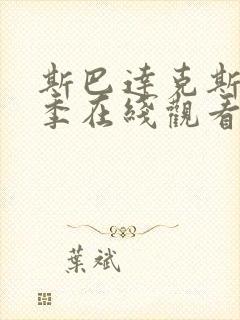 斯巴達克斯
季在綫觀看
葉斌